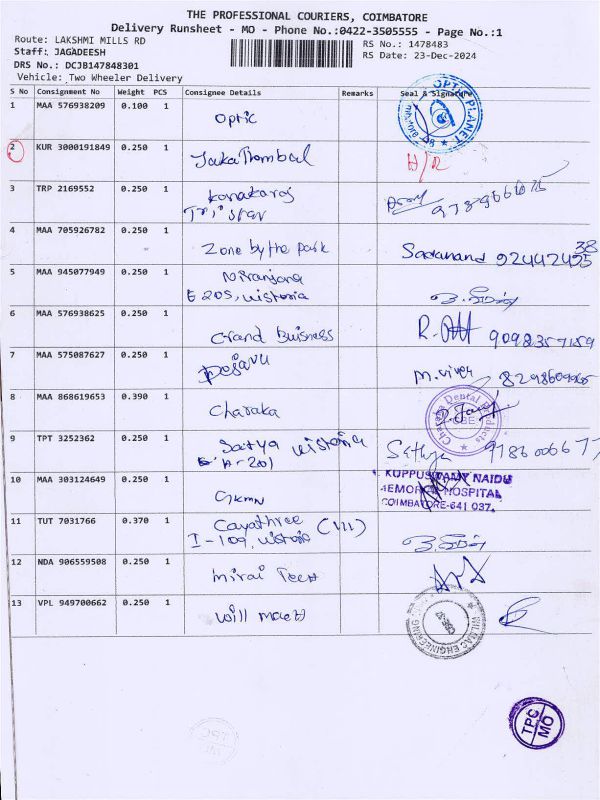 THE PROFESSIONAL COURIERS, COIMBATORE
Delivery Runsheet - MO - Phone No.:0422-3505555 - Page No.:1
Route: LAKSHMI MILLS RD
RS No.: 1478483
Staff: JAGADEESH
RS Date: 23-Dec-2024
DRS No.: DCJB147848301
Vehicle: Two Wheeler Delivery
S No Consignment No Weight PCS Consignee Details Remarks Seal & Signature
1 MAA 576938209 0.100 1 Optic
OPTO PLANET
2 KUR 3000191849 0.250 1 H/R
3 TRP 2169552 0.250 1
Tristar
4 MAA 705926782 0.250 1 Zone by the park Sadanand
5 MAA 945077949 0.250 1 Niranjana
E 205, Wistoria
6 MAA 576938625 0.250 1 Grand Buisness 9098357159
7 MAA 575087627 0.250 1 Dejavu
8 MAA 868619653 0.390 1 Charaka
Charaka Dental Products
CBE
9 TPT 3252362 0.250 1 Satya Wistoria Sathya
A-201
10 MAA 303124649 0.250 1 GKMN
KUPPUSWAMY NAIDU
MEMORIAL HOSPITAL
COIMBATORE-641 037.
11 TUT 7031766 0.370 1 Gayathree (VII)
I-109, Wistoria
12 NDA 906559508 0.250 1 Mirai Teex
13 VPL 949700662 0.250 1 Will Mact
WILMAC ENGINEERING
TPC
MO